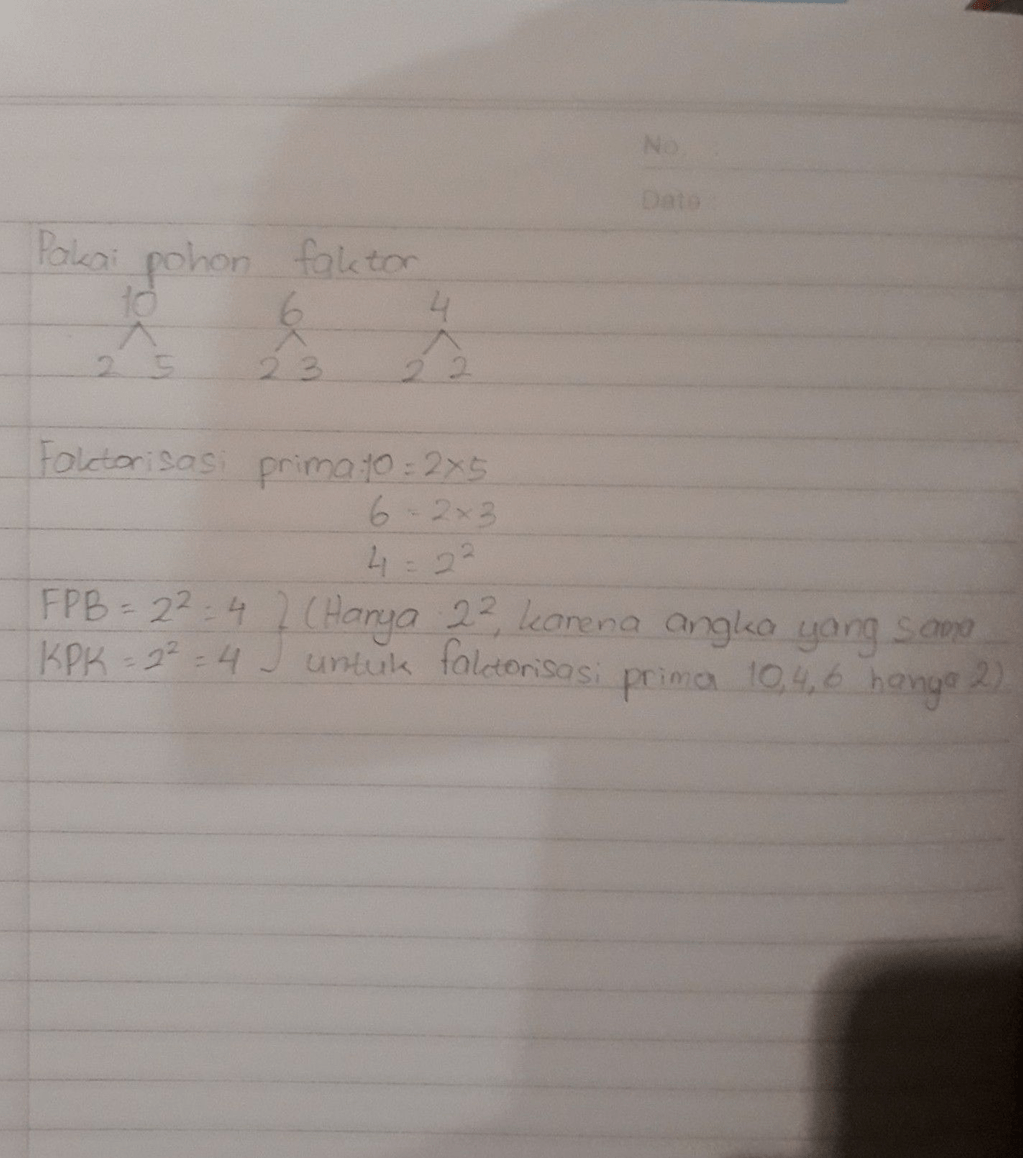 No :
Date :
Pakai pohon faktor
10 6 4
2 5 2 3 2 2
Faktorisasi prima:10 = 2x5
6 = 2x3
4 = 2²
FPB = 2² = 4 } (Hanya 2², karena angka yang sama
KPK = 2² = 4 } untuk faktorisasi prima 10,4,6 hanya 2)